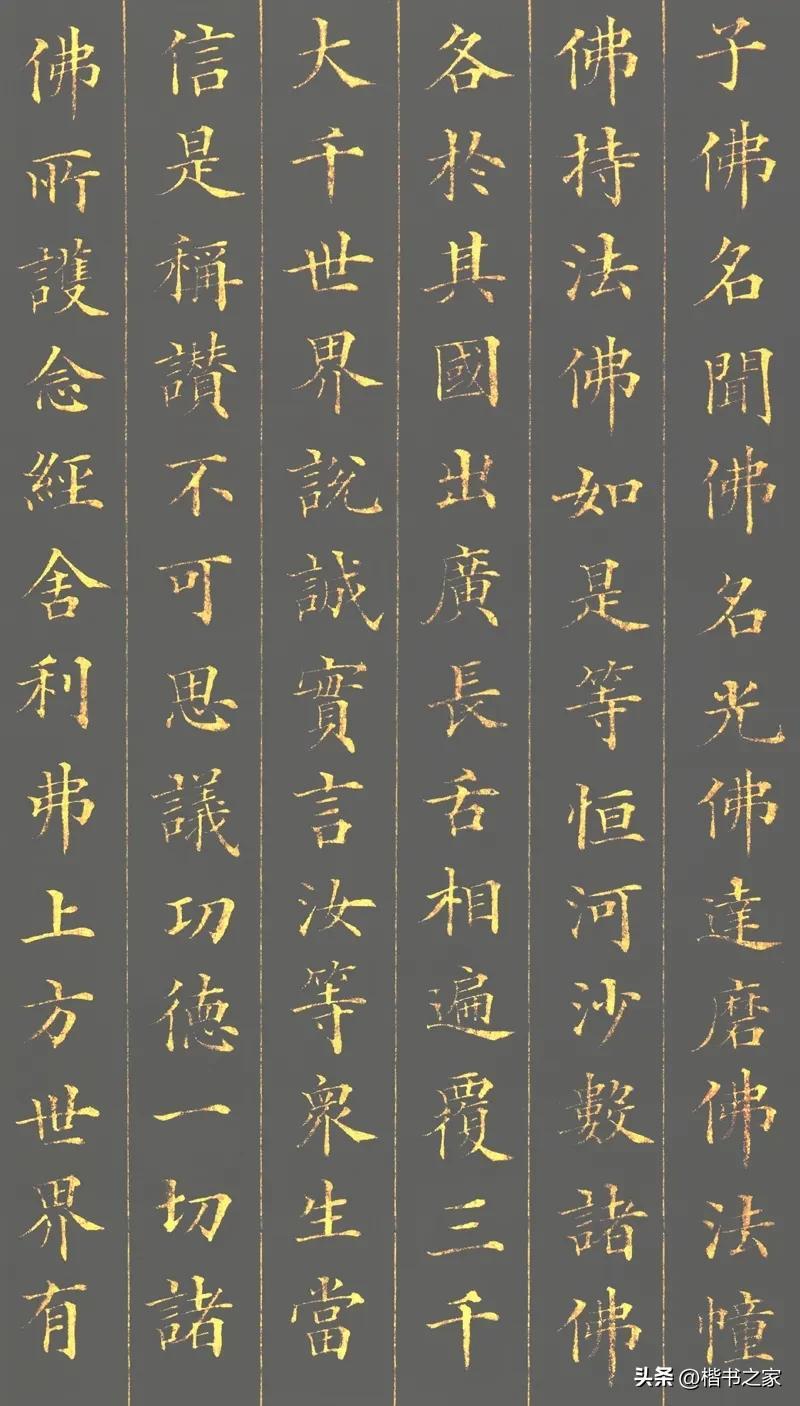 子佛名聞佛名光佛達磨佛法幢
佛持法佛如是等恒河沙數諸佛
各於其國出廣長舌相遍覆三千
大千世界說誠實言汝等衆生當
信是稱讚不可思議功德一切諸
佛所護念經舍利弗上方世界有
头条 @楷书之家